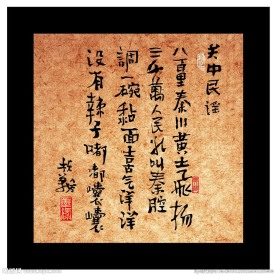 关中民謡
八百里秦川黄土飛扬
三千萬人民乱叫秦腔
調一碗黏面喜气洋洋
没有辣子嘟嘟囔囔